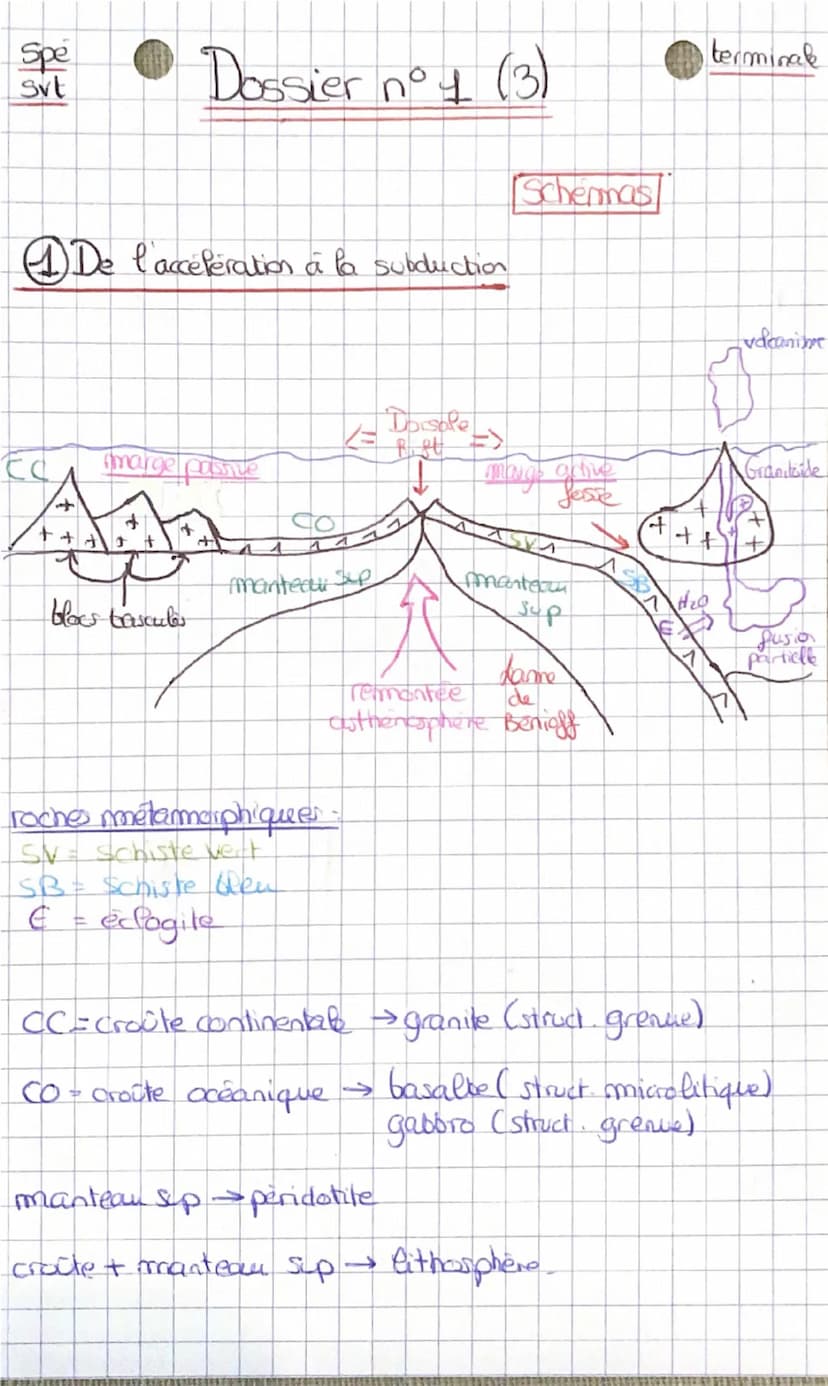 Spé
svt
Dossier n° 1 (3)
terminale
Schémas
① De l'accélération à la subduction
volcanisme
<= Dorsale =>
Rift
CC
marge passive
marge active
fosse
Granitoïde
CO
SV
manteau sup
manteau
sup
SB
H2O
E
blocs basculés
fusion
partielle
remontée
asthénosphère
plane
de
Bénioff
roches métamorphiques :
SV = Schiste vert
SB = Schiste bleu
E = éclogite
CC = croûte continentale → granite (struct. grenue)
CO = croûte océanique → basalte (struct. microlitique)
gabbro (struct. grenue)
manteau sup → péridotite
croûte + manteau sup → lithosphère.